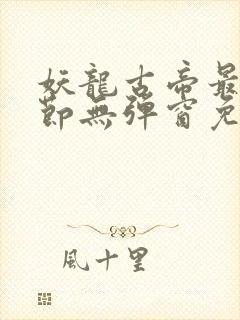 妖龍古帝最
節無彈窗免
風十里